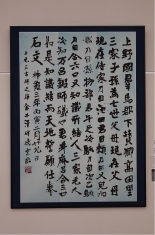 上野國羣馬郡下賛郷高田里
三家子孫為七世父母現在父母
現在侍家刀自他田君目頬刀自又兒加
那刀自孫物部君午足次馴刀自次乙馴
刀自合六口又知識所結人三家毛人
次知万呂鍛師礒部君身麻呂合三口
如是知識結而天地誓願仕奉
石文 神亀三年丙寅二月廿九日